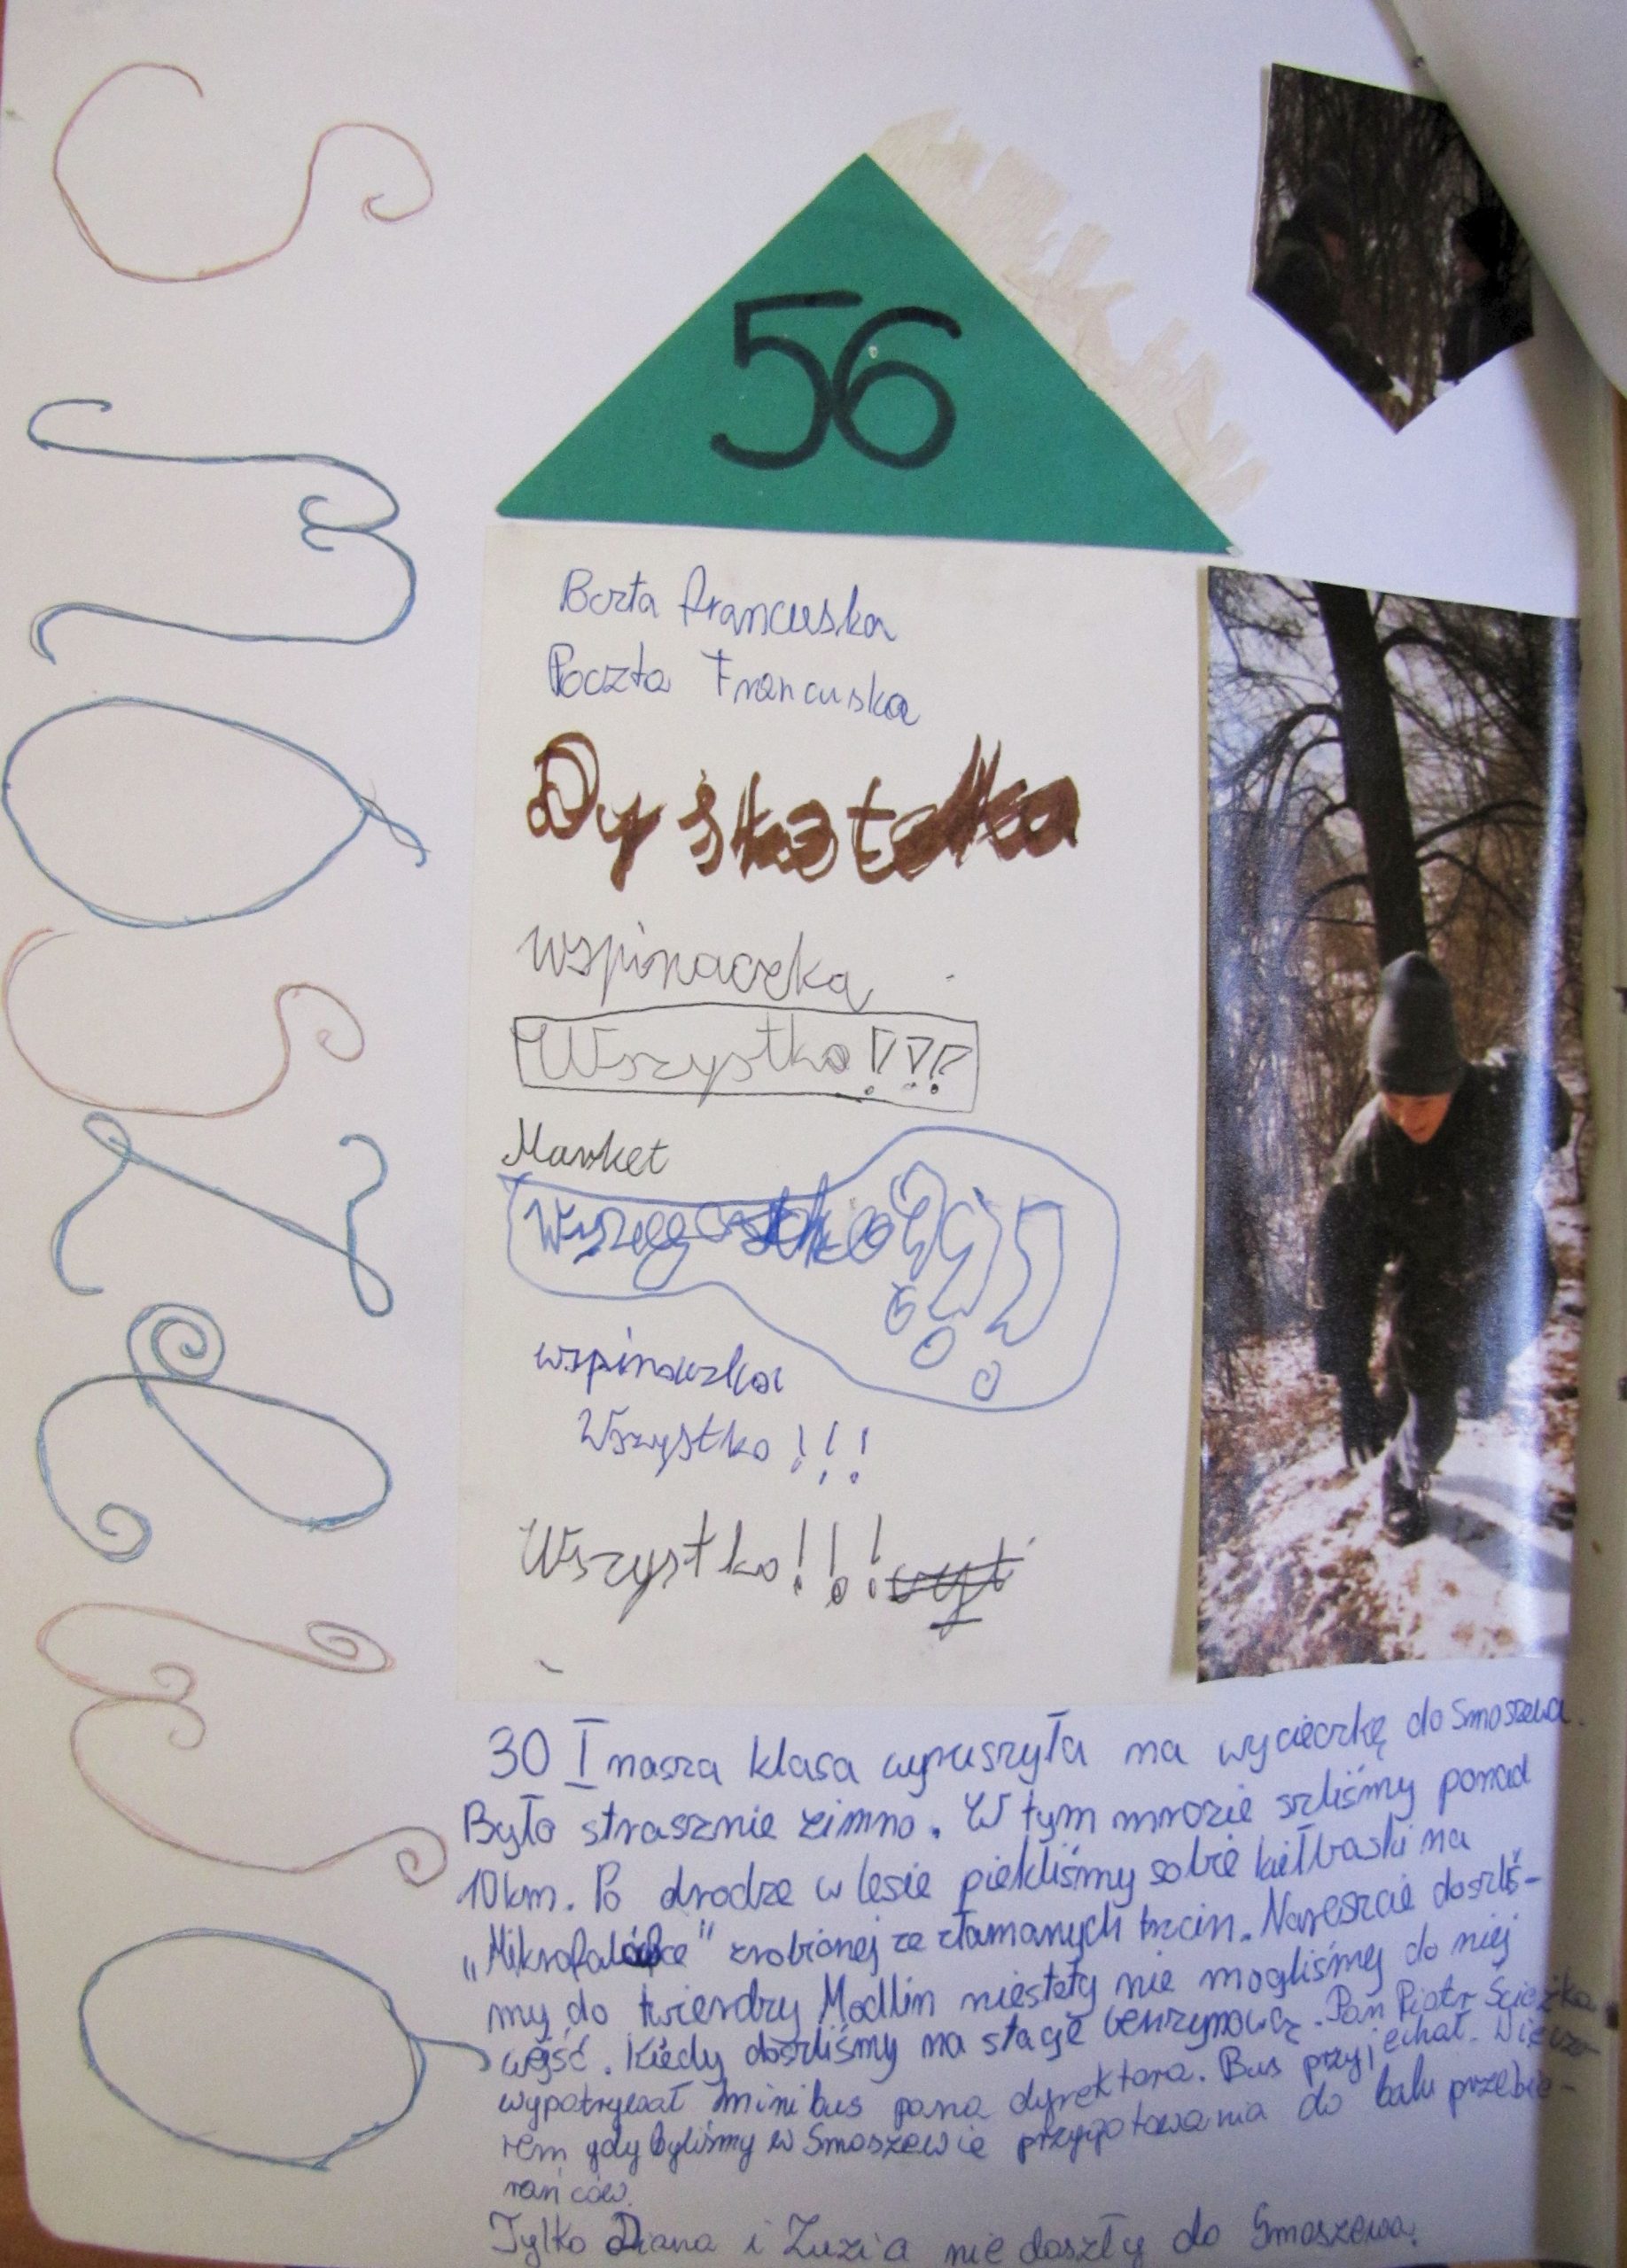 SMOSZEWO
56
Borta francuska
Poczta Francuska
Dyskoteka
wspinaczka
Wszystko!!!
Market
wspinaczka
Wszystko!!!
Wszystko!!!
30 I nasza klasa wyruszyła na wycieczkę do Smoszewa.
Było strasznie zimno. W tym mrozie szliśmy ponad
10km. Po drodze w lesie piekliśmy sobie kiełbaski na
„Mikrofalówce" zrobionej ze złamanych trzcin. Nareszcie doszliś-
my do twierdzy Modlin niestety nie mogliśmy do niej
wejść. Kiedy doszliśmy na stację benzynową. Pan Piotr Ścieżka
wypatrywał minibus pana dyrektora. Bus przyjechał. Wieczo-
rem gdy byliśmy w Smoszewie przygotowania do balu przebie-
rańców.
Tylko Diana i Zuzia nie doszły do Smoszewa.